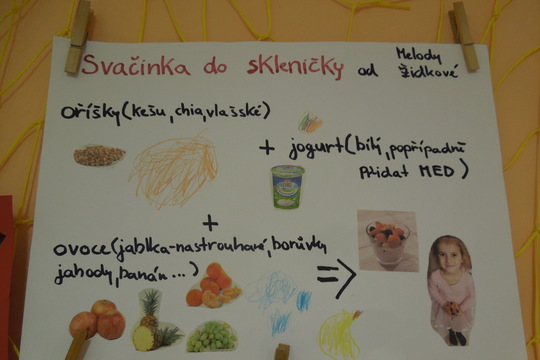 Svačinka do skleničky od Melody Židkové
oříšky (kešu, chia, vlašské)
+ jogurt (bílí, popřípadně
přidat MED)
+
ovoce (jablka-nastrouhané, borůvky
jahody, banán ...)
=>